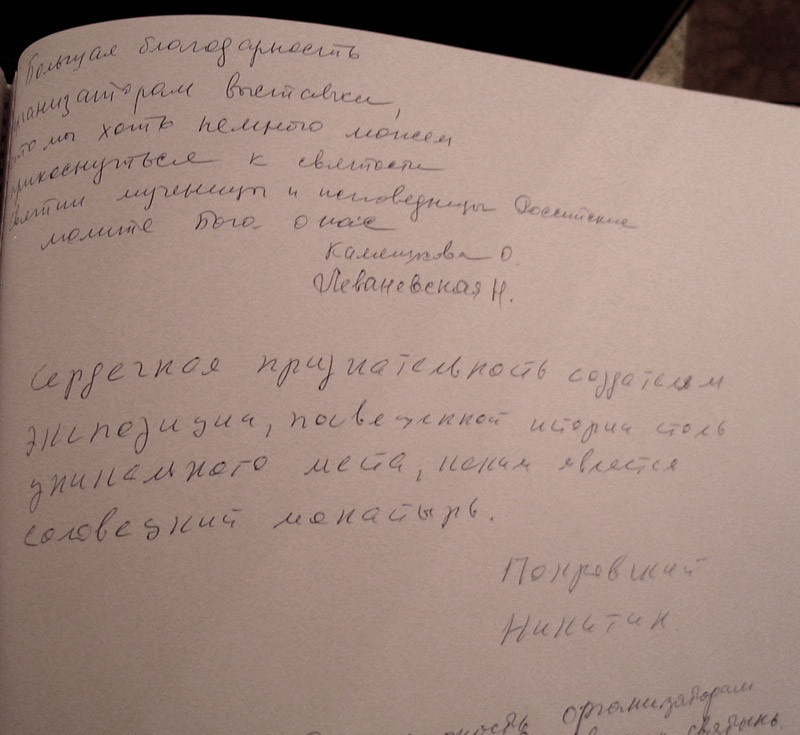 Большая благодарность
организаторам выставки,
что мы хоть немного можем
прикоснуться к святости
Святии мученицы и исповедницы Российские
молите Бога о нас
О.
Леваневская Н.
Сердечная признательность создателям
экспозиции, посвещенной истории столь
уникального места, каким является
Соловецкий монастырь.
Покровский
Никитин.
организаторам